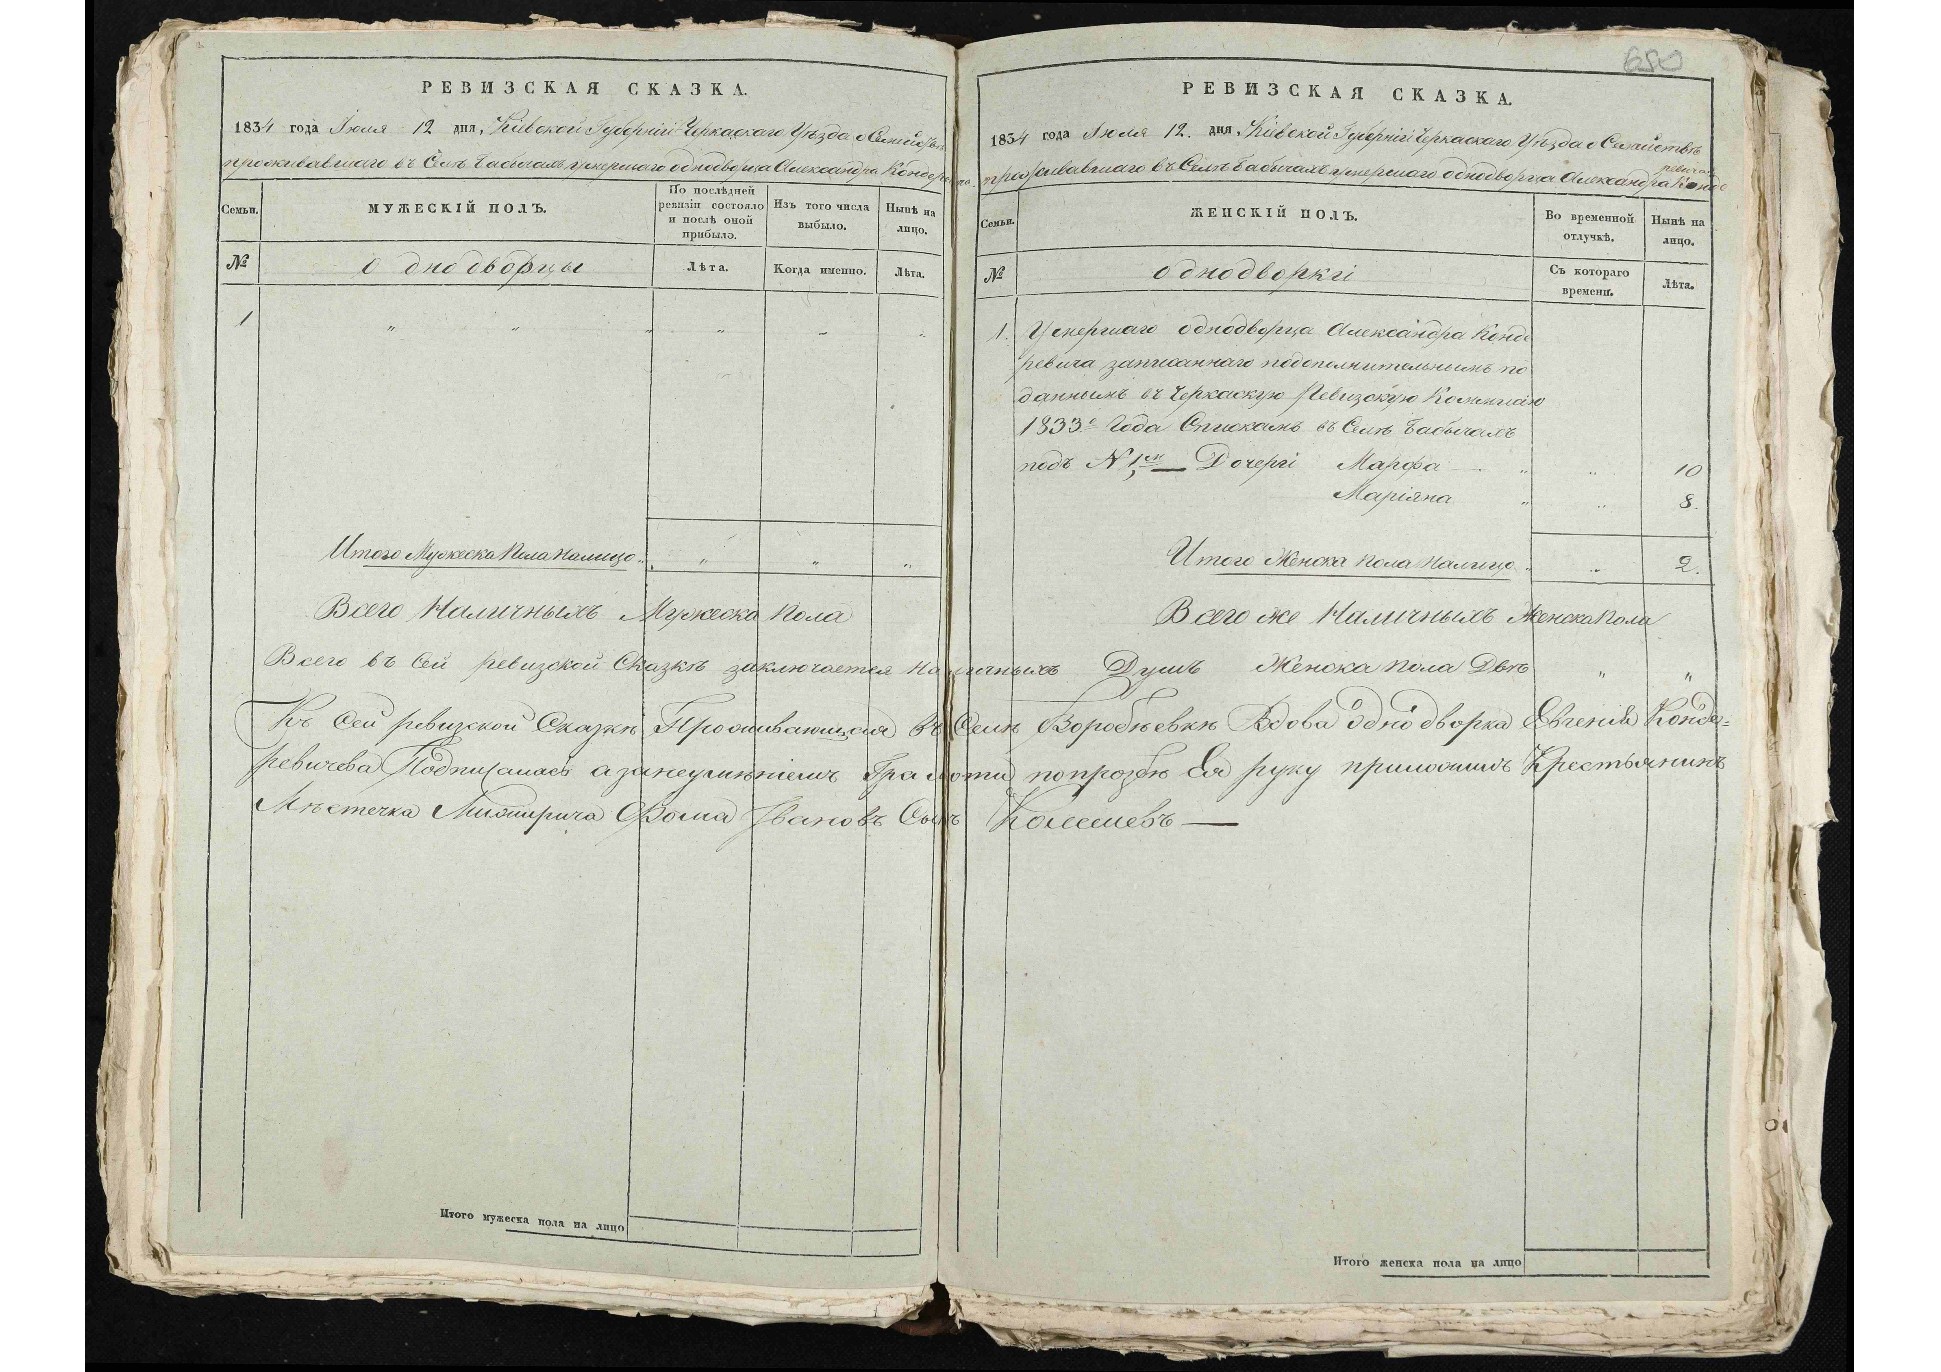 РЕВИЗСКАЯ СКАЗКА.
1834 года Іюля 12 дня, Кіевской Губерніи Черкаскаго Уѣзда о Семействѣ
проживавшаго въ Селѣ Бабичахъ умершаго однодворца Александра Кондере
Семьи.
МУЖЕСКІЙ ПОЛЪ.
По послѣдней ревизіи состояло и послѣ оной прибыло.
Изъ того числа выбыло.
Нынѣ на лицо.
№
однодворцы
Лѣта.
Когда именно.
Лѣта.
1 " " " " " "
Итого Мужеска Пола налицо " " " "
Всего Наличныхъ Мужеска пола
Итого мужеска пола на лицо
680
РЕВИЗСКАЯ СКАЗКА.
1834 года Іюля 12. дня Кіевской Губерніи Черкаскаго Уѣзда о Семействѣ
проживавшаго въ Селѣ Бабичахъ умершаго однодворца Александра Конде
ревича
Семьи.
ЖЕНСКІЙ ПОЛЪ.
Во временной отлучкѣ.
Нынѣ на лицо.
№
однодворкі
Съ котораго времени.
Лѣта.
1. Умершаго однодворца Александра Конде
ревича записаннаго подополнительнымъ по
даннымъ въ Черкаскую Ревизскую Коммисію
1833го Года Спискамъ въ Селѣ Бабичахъ
подъ N 1м — Дочері Марфа — " " 10
Маріяна " " 8.
Итого Женска пола налицо " " 2.
Всего же Наличныхъ Женска пола
Всего въ Сей ревизской Сказкѣ заключается Наличныхъ Душъ Женска пола Двѣ " "
Къ Сей ревизской Сказкѣ Проживающая въ Селѣ Воробѣевкѣ Вдова Однодворка Евгенія Конде=
ревичева Подписалась а занеумѣніемъ Грамоти попрозбѣ Ея руку приложилъ Крестьянинъ
Мѣстечка Межирича Фома Ивановъ Сынъ —
Итого женска пола на лицо